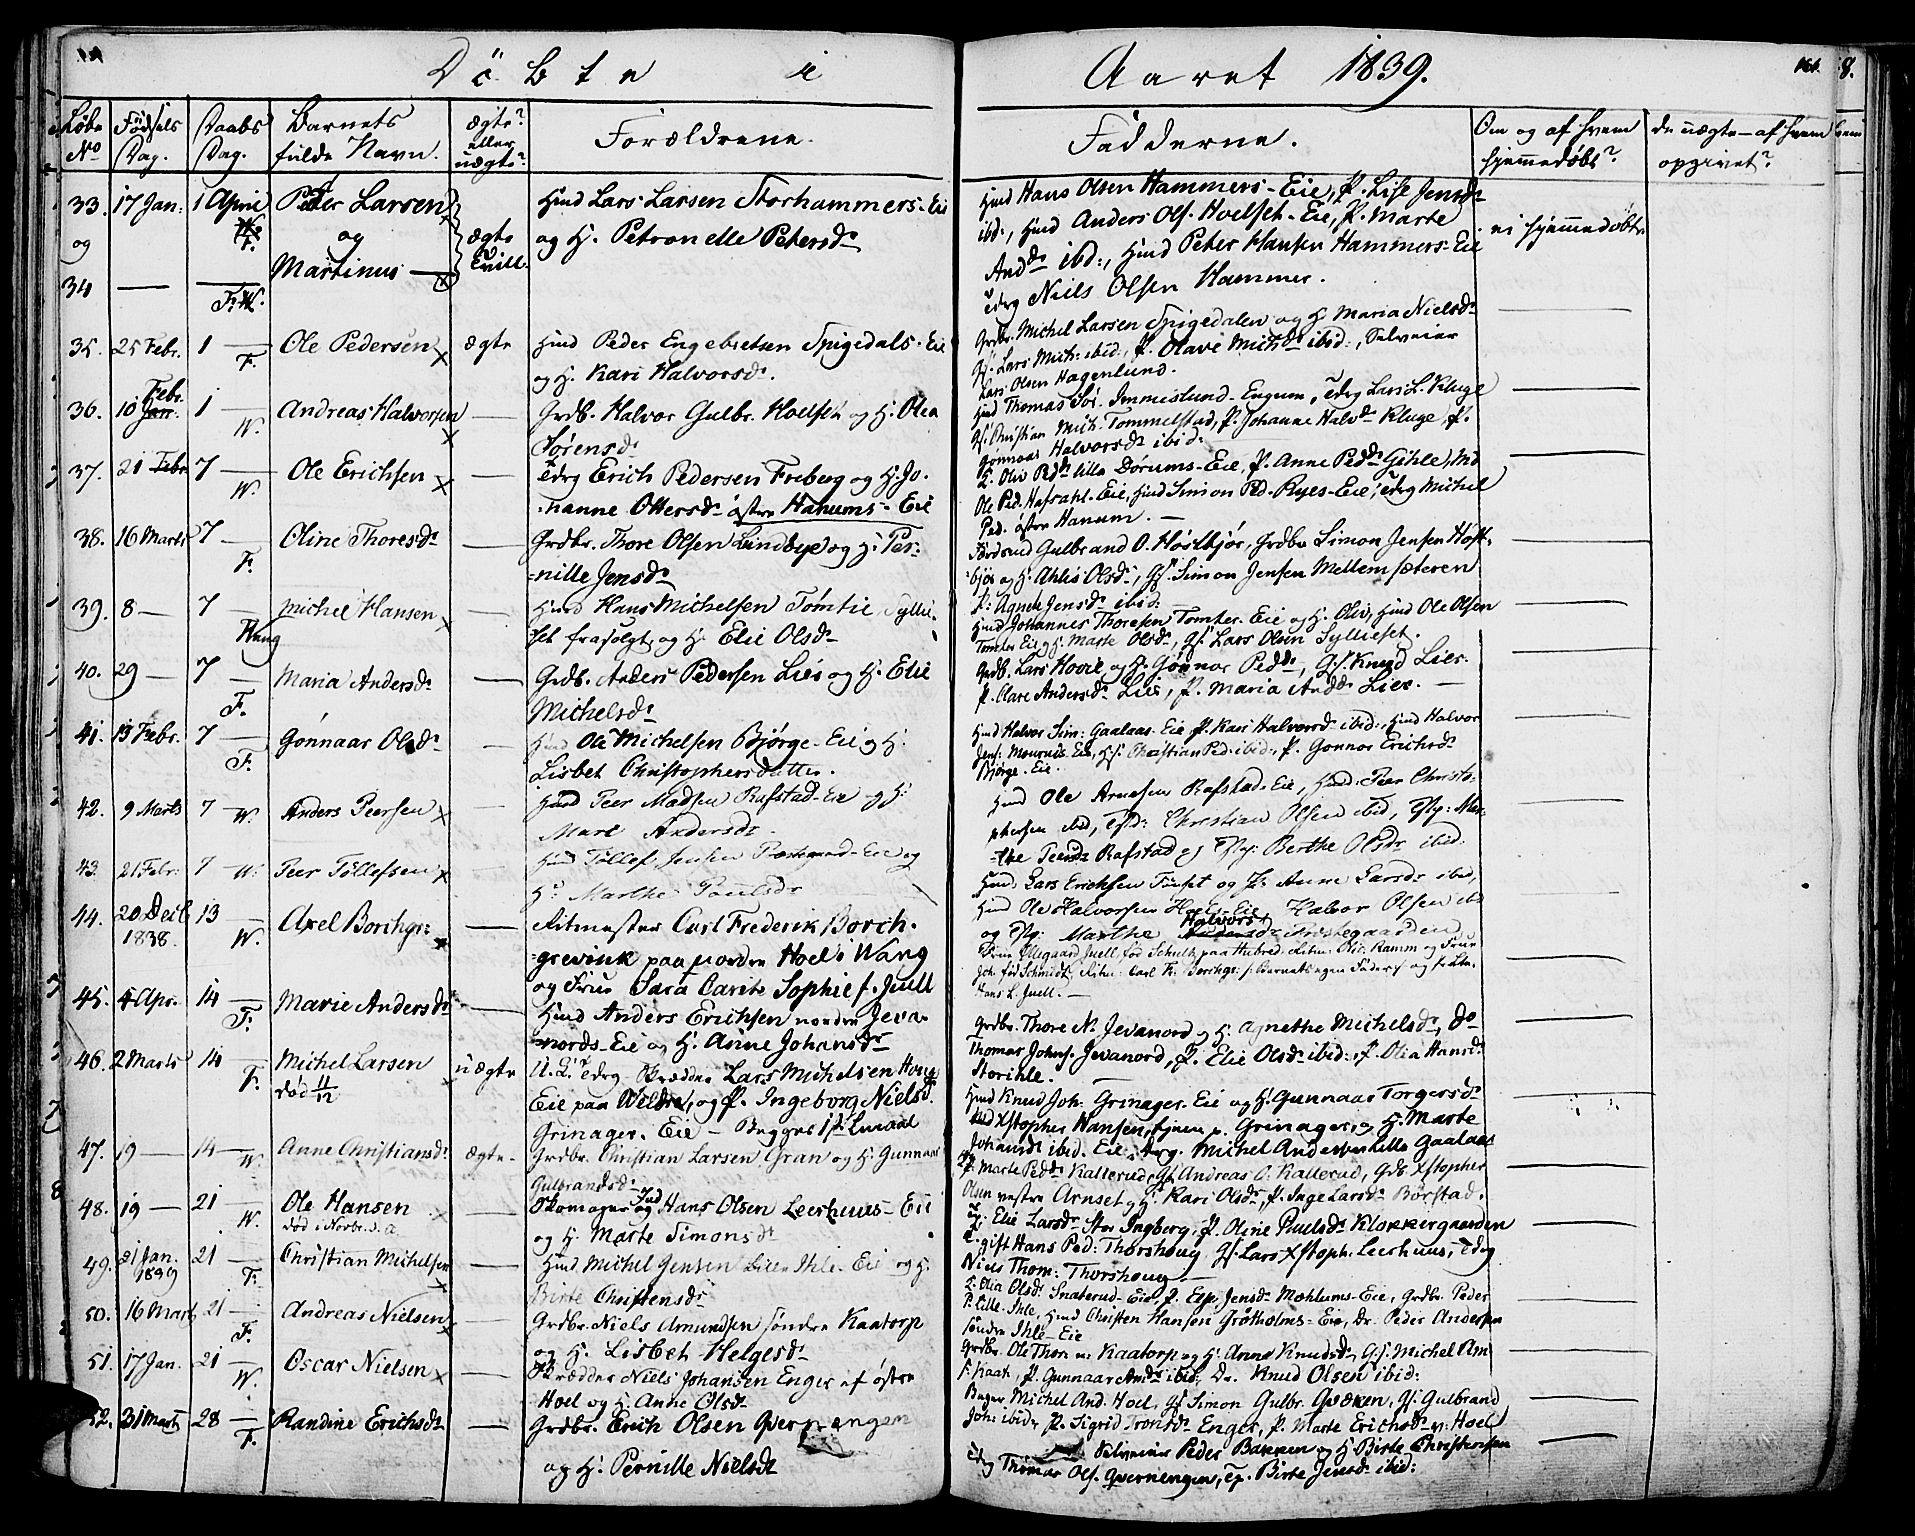 Döbte i Aaret 1839.
161. 8.
Løbe No Fødsels Dag. Daabs Dag. Barnets fulde Navn. ægte? eller uægte? Forældrene. Fadderne. Om og af hvem hjemmedøbt? De uægte – af hvem opgivet?
33. 17 Jan: 1 April Peder Larsen Huusd Lars Larsen Storhammers-Eie
og og ægte og H. Petronelle Petersdr
Martinus — Tvill.
34 — — F.
Hmd Hans Olsen Hammers-Eie, P. Lise Jensdr
ibd:, Hmd Anders Ols. Hoelset-Eie, P. Marte
Anddr ibd:, Hmd Peter Hansen Hammers-Eie
Niels Olsen Hammer.
ei hjemmedøbte
35. 25 Febr. 1 — F. Ole Pedersen ægte Hmd Peder Engebretsen Spigedals-Eie
og H. Kari Halvorsdr.
Grdbr. Michel Larsen Spigedalen og H. Maria Nielsdr
Gs. Lars Mich: ibid:, P. Olave Michdr ibid:, Selveier
Lars Olsen Hagenlund.
36. 10 Febr. Jan: 1 — W. Andreas Halvorsen — Grdb. Halvor Gulbr. Hoelset og H. Olea
Sörensdr
Hmd Thomas Sör. Immeslund-Engum, Lars L. Kluge
Gs. Christian Mich. Tommelstad, P. Johanne Halvdr Kluge, P.
Gönnaar Halvorsdr ibid:
37. 21 Febr 7 — W. Ole Erichsen — Erich Pedersen Freberg og H. Jo-
hanne Ottersdr östre Hanums-Eie
E. Oliv Peddr lille Dörums-Eie, P. Anne Peddr Gihle,
Ole Ped. Hafsahl-Eie, Hmd Simon Ped. Ryes-Eie, Michel
Ped. östre Hanum. —
38. 16 Marts 7 — F. Oline Thoresdr — Grdbr. Thore Olsen Lindbye og H. Per-
nille Jensdr
Gulbrand O. Höstbjör, Grdbr Simon Jensen Höst-
björ og H. Ahlis Olsdr, Gs. Simon Jensen Mellemsæteren
P: Agnete Jensdr ibid:
39. 8 — 7 — Michel Hansen — Hmd Hans Michelsen Tömtie
set frasolgt, og H. Elie Olsdr
Hmd Johannes Thoresen Tomter-Eie og H. Oliv, Hmd Ole Olsen
Tomter Eie, H. Marte Olsdr, Gs. Lars Olsen Syllieset.
40. 29 — 7 — F. Maria Andersdr — Grdb. Anders Pedersen Lier og H. Elie
Michelsdr
Grdb. Lars Hovie og H. Gönnor Peddr, Gs. Knud Lier.
P. Clare Andersdr Lier, P. Maria Anddr Lier. —
41. 13 Febr. 7 — F. Gönnaar Olsdr — Hmd Ole Michelsen Björge-Eie og H.
Lisbet Christophersdatter.
Hmd Halvor Sim: Gaalaas-Eie P. Kari Halvorsdr ibid:, Hmd Halvor
Jens: Eie, Gs. Christian Ped: ibid:, P. Gonnor Erichsdr
Björge-Eie.
42. 9 Marts 7 — W. Anders Peersen — Hmd Peer Madsen Rafstad-Eie og H:
Mari Andersdr.
Hmd Ole Arnesen Rafstad-Eie, Hmd: Peer Christo-
phersen ibid, Christian Olsen ibid, Mar-
the Peersdr Rafstad og Berthe Olsdr ibid:
43. 21 Febr: 7 — W. Peer Tøllefsen — Hmd Tøllef Jensen Præstegaard-Eie og
H: Marthe Poulsdr
Hmd. Lars Erichsen Finset og P: Anne Larsdr ibid,
Hmd Ole Halvorsen Hoels-Eie, Halvor Olsen ibd
og Marthe Halvorsd Præstegaarden
44. 20 Decb 1838. 13 — W. Axel Borchgr: — Ritmester Carl Frederik Borch-
grevink paa nordre Hoel i Wang
og Frue Sara Carete Sophie f. Juell
Frue Ollegaard Juell, föd Schultz paa Hubred, Ritm: Ramm og Frue
Joh. föd Schmidt, Ritm: Carl Fr. Borchgr: Barnets egen Fader og
Hans L. Juell. —
45. 4 Apr. 14 — F. Marie Andersdr — Hmd Anders Erichsen nordre Jeva-
nords-Eie og H. Anne Johansdr
Grdbr. Thore N. Jevanord og H. Agnethe Michelsdr, Do
Thomas Johns. Jevanord, P. Elie Olsdr ibid:, P. Olia Hansdr
Storihle.
46. 2 Marts 14 — F. Michel Larsen uægte U. E. Skrædder Lars Michelsen Hovs
död 11/12 Eie paa Weldre, og P. Ingeborg Nielsdr
Grinager-Eie — Begges 1st Leiermaal
Hmd Knud Joh. Grinager-Eie og H. Gunnaar Torgersdr
Xstopher Hansen, tjener p. Grinager, og H. Marte
Johansdr ibid. Eie, Michel Andersen Lille Gaalaas
47. 19 — 14 — W. Anne Christiansdr ægte Grdbr. Christian Larsen Gran og H. Gunnaar
Gulbrandsdr
P. Marte Peddr Kallerud, Gs Andreas O. Kallerud, Gdb. Xstopher
Olsen vestre Arnset, H. Kari Olsdr, P. Inge Larsdr Börstad.
48. 19 — 21 — W. Ole Hansen — Skomager og Hans Olsen Leerhuus-Eie
död i Novbr. s. a. og H. Marte Simonsdr
Elie Larsdr Stor Ingberg, P. Oline Paulsdr Klokkergaarden
Hans Ped: Thorshoug, Gs. Lars Xstoph. Leerhuus,
Niels Thom: Thorshoug —
49. 31 Jan. 1839 21 — F. Christian Michelsen — Hmd Michel Jensen Lille Ihle-Eie og H.
Birte Christensdr
E. Olia Olsdr Snaterud-Eie, P. Elp. Jensdr Mæhlums-Eie, Grdbr. Peder
P. Lille-Ihle, Hmd Christen Hansen Grötholms-Eie, Dr. Peder Andersen
söndre Ihle-Eie
50. 16 Marts 21 — F. Andreas Nielsen — Grdbr. Niels Amundsen söndre Kaatorp
og H. Lisbet Helgesdr
Grdbr. Ole Thor: n: Kaatorp og H. Anne Knudsdr, Gs. Michel Am.
s. Kaat:, P. Gunnaar Amdr ibid:, Dr. Knud Olsen ibid:
51. 17 Jan. 21 — W. Oscar Nielsen — Skrædder Niels Johansen Enger af östre
Hoel og H. Anne Olsdr
Michel And. Hoel, Gs. Simon Gulbr. Qvæken, Gs. Gulbrand
Joh: ibid:, P. Sigrid Ironsdr Enger, P. Marte Erichsdr v: Hoel
52. 31 Marts 28 — F. Randine Erichsdr — Grdbr. Erich Olsen Qvernengen
og H. Pernille Nielsdr
Selveier Peder Bakken og H. Birte Christensen
Thomas Ols. Qvernengen, Ep. Birte Jensdr ibid: